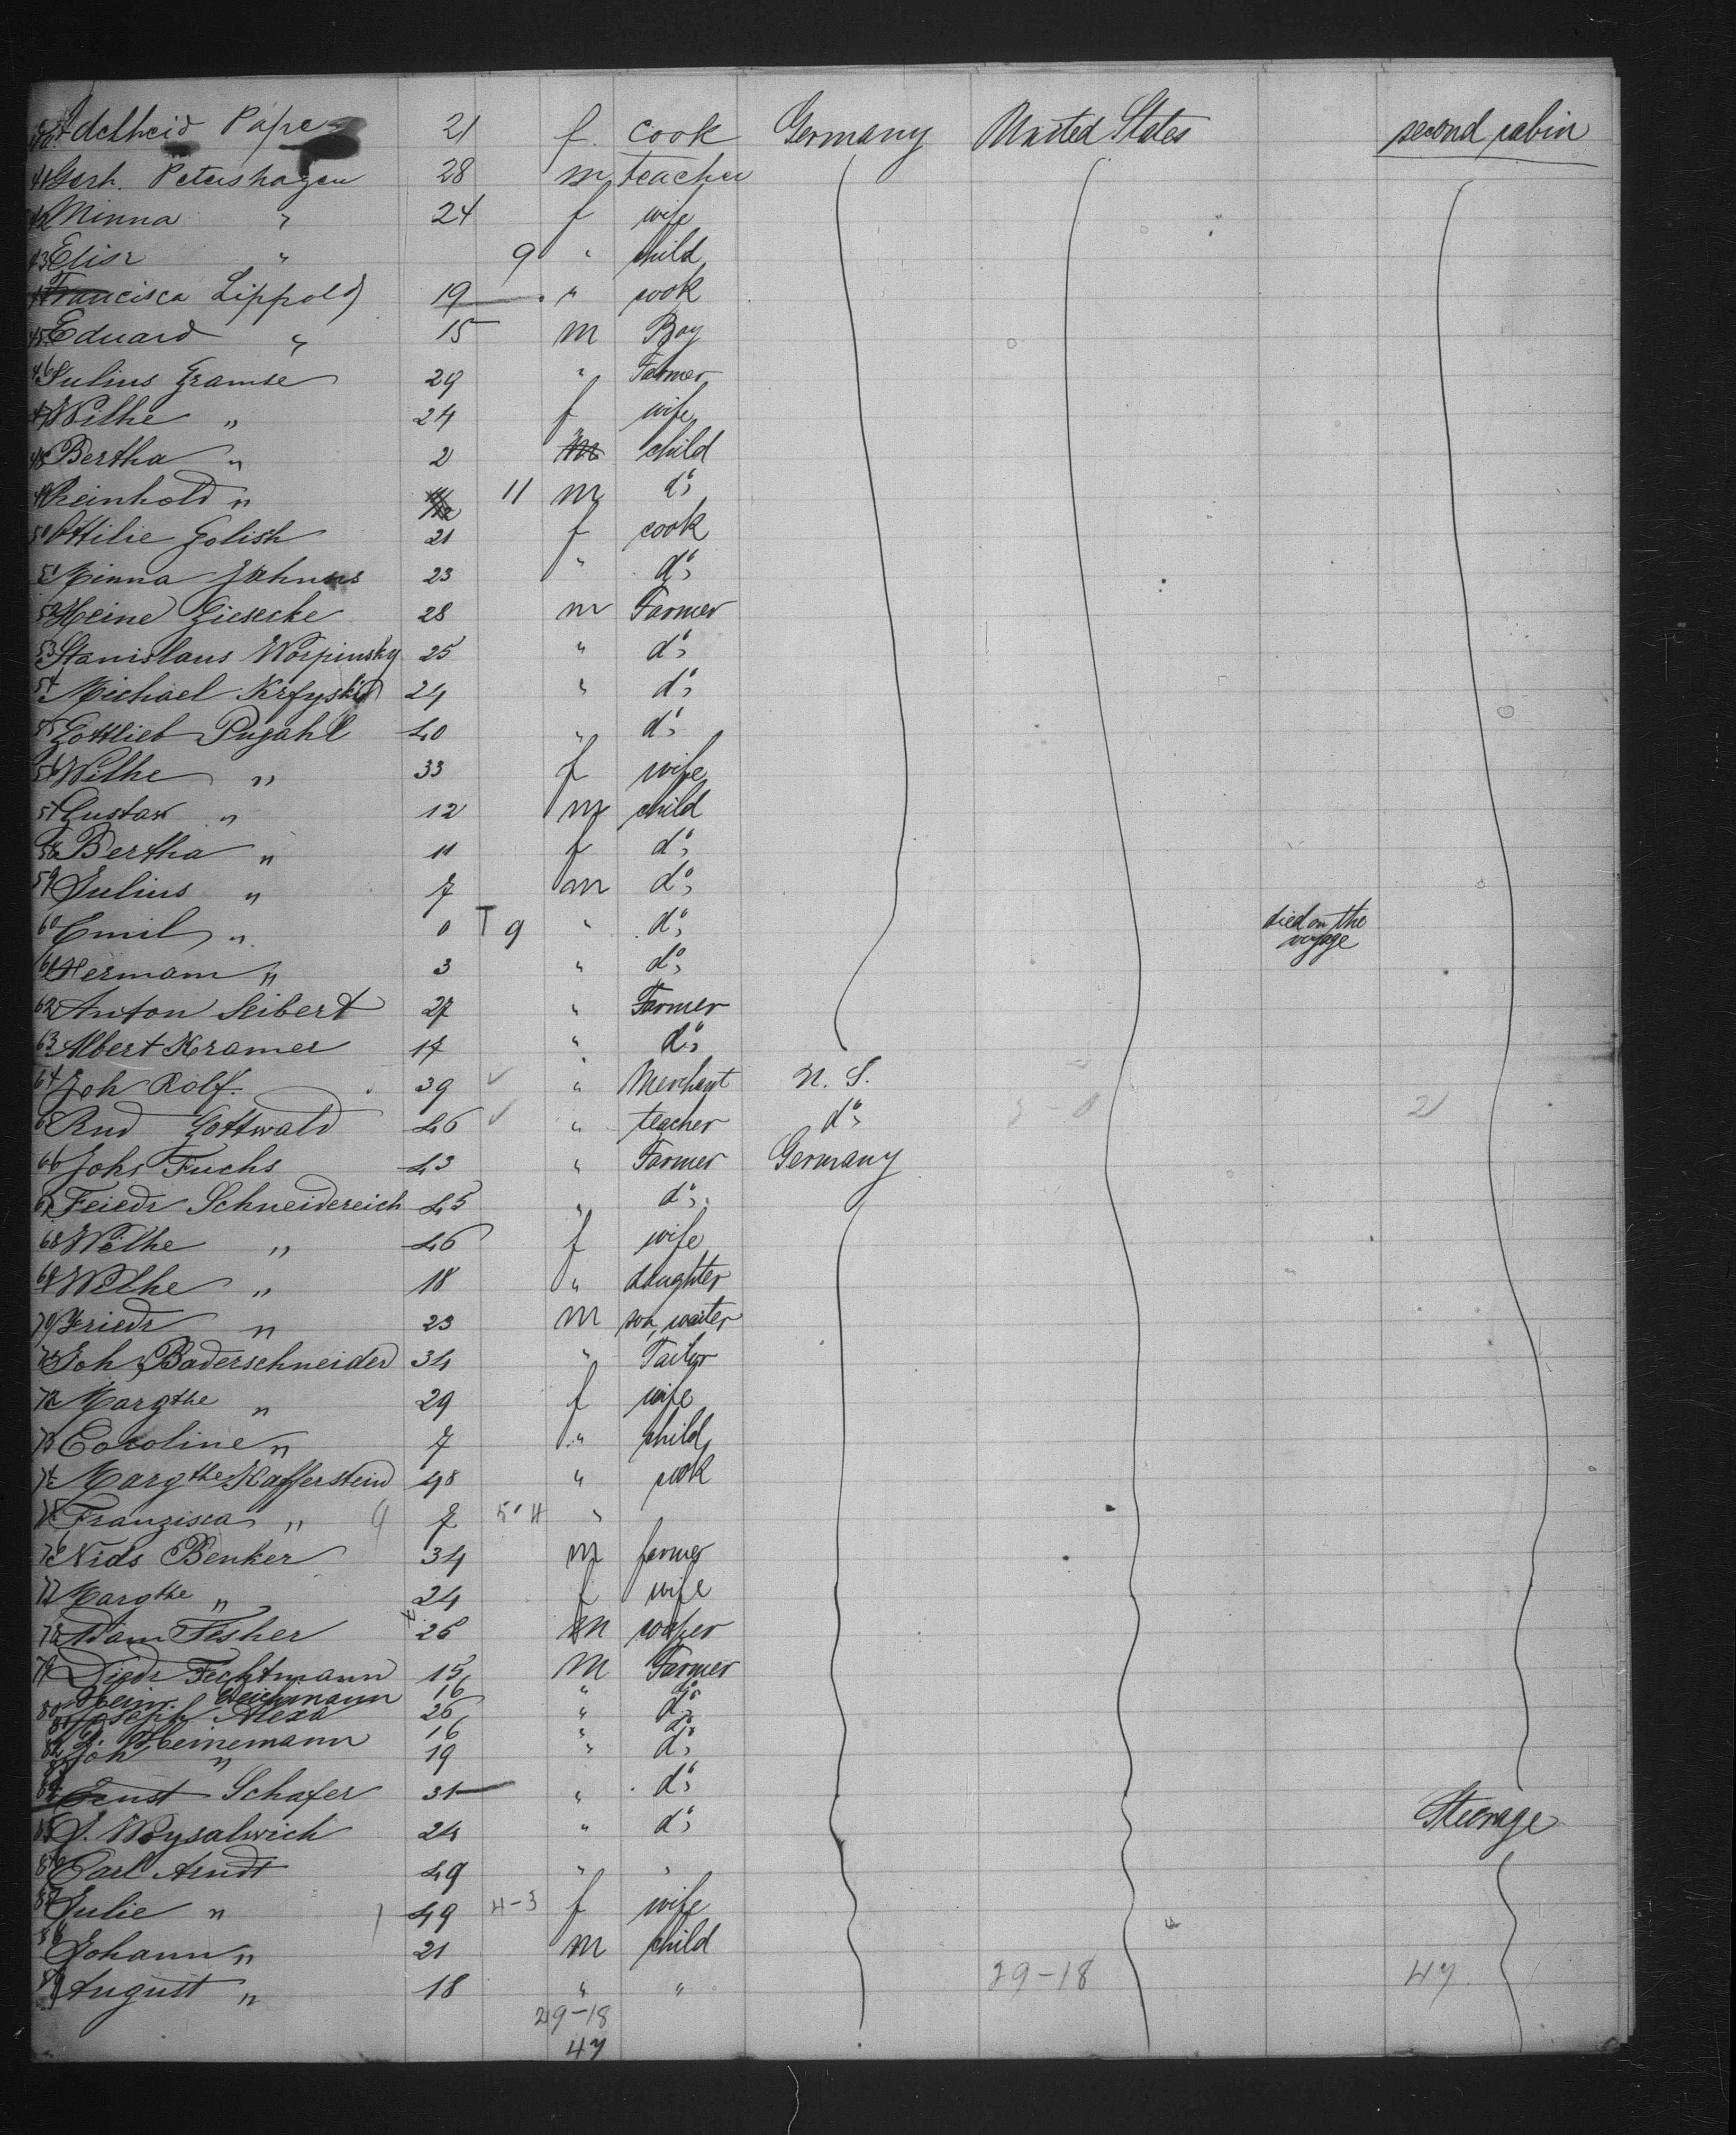 40 Adelheid Pape 21 f. cook Germany United States second cabin
41 Gerh. Petershagen 28 m teacher
42 Minna " 24 f wife
43 Elise " 9 " child
44 Francisca Lippold 19 " cook
45 Eduard " 15 m Boy
46 Julius Gramse 29 " Farmer
47 Wilhe " 24 f wife
48 Bertha " 2 " child
49 Reinhold " 11 m do
50 Ottilie Golish 21 f cook
51 Minna Jahnus 23 " do
52 Heine Giesecke 28 m Farmer
53 Stanislaus Worpinsky 25 " do
54 Michael 24 " do
55 Gottlieb Pugahl 40 " do
56 Wilhe " 33 f wife
57 Gustav " 12 m child
58 Bertha " 11 f do
59 Julius " 7 m do
60 Emil " 0 T 9 " do died on the
voyage
61 Hermann " 3 " do
62 Anton Seibert 27 " Farmer
63 Albert Kramer 17 " do
64 Joh Rolf. 39 " Merchant U. S.
65 Rud Gottwald 46 " teacher do 2
66 Johs Fuchs 43 " Farmer Germany
67 Feiedr Schneidereich 45 " do
68 Wilhe " 46 f wife
69 Wilhe " 18 " daughter
70 Friedr " 23 m son, waiter
71 Joh Baderschneider 34 " Tailor
72 Margthe " 29 f wife
73 Caroline " 7 " child
74 Margthe Kafferstein 48 " cook
75 Franzisca " 7 "
76 Nids Benker 34 m farmer
77 Margthe " 24 f wife
78 Adam Fisher 26 m
79 Diedr Fechtmann 15 m Farmer
80 Heinr. Deichmann 16 " do
81 Joseph Alexa 26 " do
82 Heinemann 16 " do
83 Joh " 19 " do
84 Ernst Schafer 31 " do
85 J. Woysalwich 24 " do Steerage
86 Carl Arndt 49 " "
87 Julie " 49 4-3 f wife
88 Johann " 21 m child
89 August " 18 " " 29-18 47
29-18
47